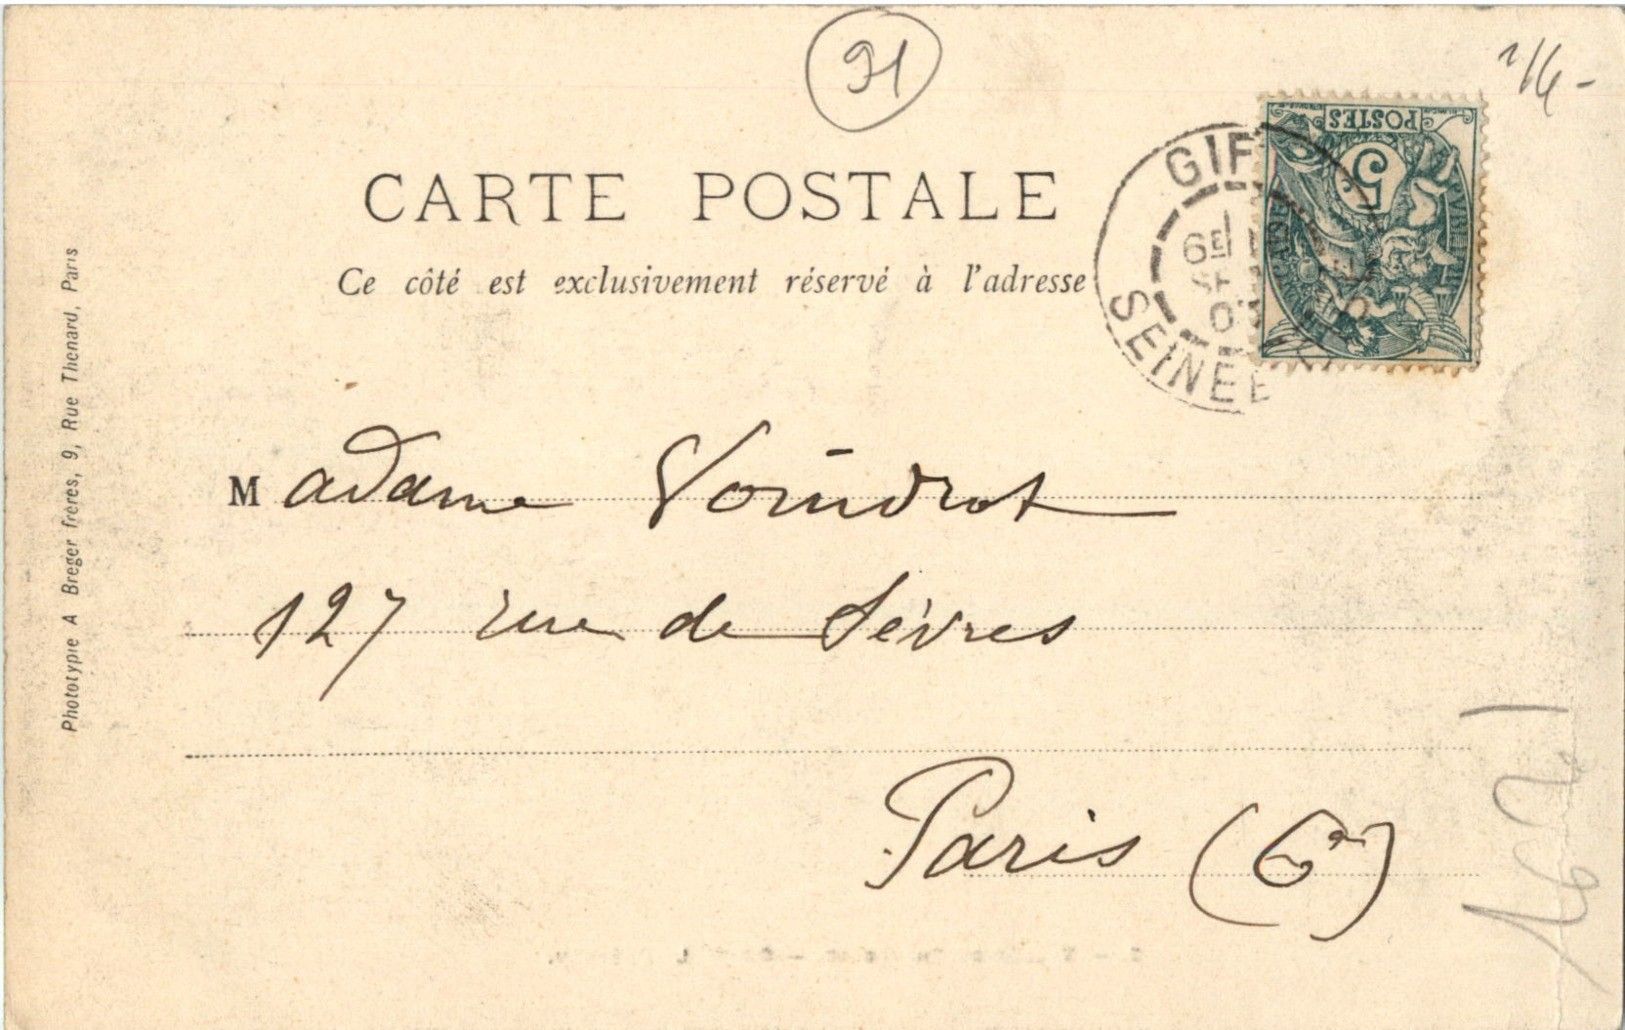 91
CARTE POSTALE
Ce côté est exclusivement réservé à l'adresse
GIF
6E
03
SEINE
POSTES
5
Madame Voindrot
127 rue de Sèvres
Paris (6e)
Phototypie A Breger frères, 9, Rue Thenard, Paris